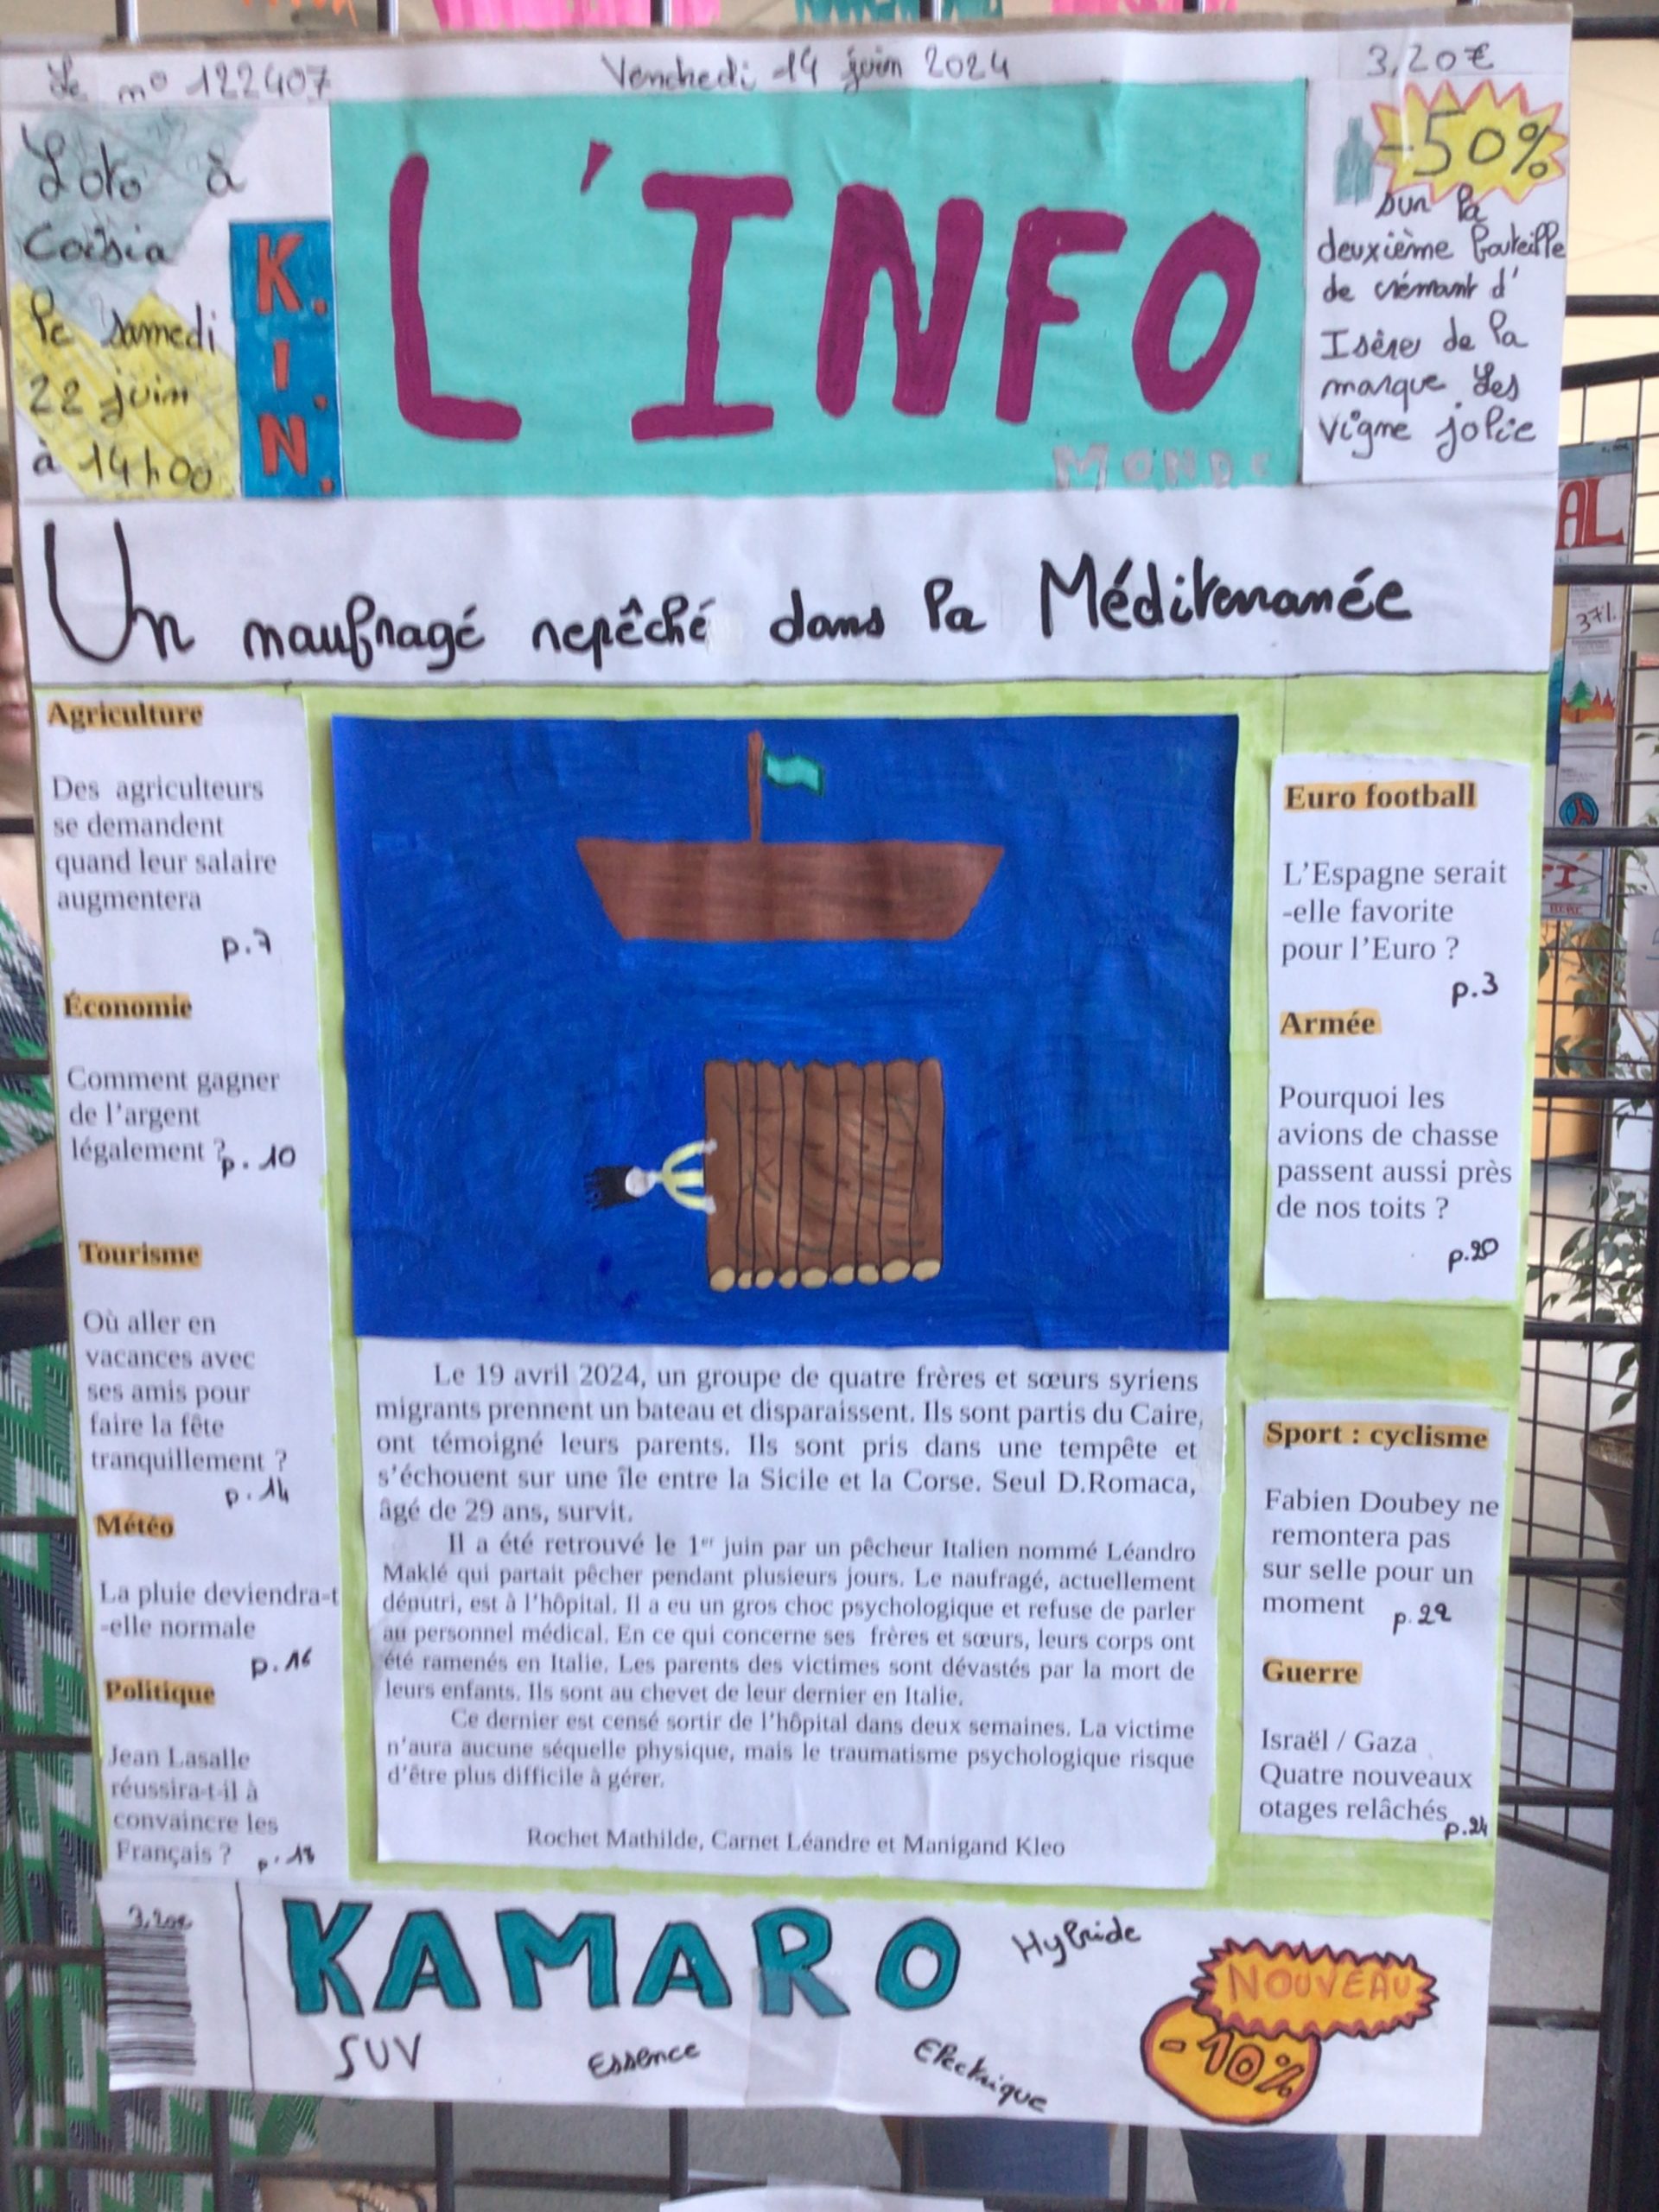 Le n° 122407
Vendredi 14 juin 2024
3,20€
Loto à
Coisia
le samedi
22 juin
à 14h00
K.
I.
N.
L'INFO
MONDE
-50%
sur la
deuxième bouteille
de crémant d'
Isère de la
marque Les
vigne jolie
Un naufragé repêché dans la Méditerranée
Agriculture
Des agriculteurs
se demandent
quand leur salaire
augmentera
p.7
Économie
Comment gagner
de l'argent
légalement ?
p. 10
Tourisme
Où aller en
vacances avec
ses amis pour
faire la fête
tranquillement ?
p. 14
Météo
La pluie deviendra-t
-elle normale
p. 16
Politique
Jean Lasalle
réussira-t-il à
convaincre les
Français ?
p. 18
Le 19 avril 2024, un groupe de quatre frères et sœurs syriens
migrants prennent un bateau et disparaissent. Ils sont partis du Caire,
ont témoigné leurs parents. Ils sont pris dans une tempête et
s'échouent sur une île entre la Sicile et la Corse. Seul D.Romaca,
âgé de 29 ans, survit.
Il a été retrouvé le 1er juin par un pêcheur Italien nommé Léandro
Maklé qui partait pêcher pendant plusieurs jours. Le naufragé, actuellement
dénutri, est à l'hôpital. Il a eu un gros choc psychologique et refuse de parler
au personnel médical. En ce qui concerne ses frères et sœurs, leurs corps ont
été ramenés en Italie. Les parents des victimes sont dévastés par la mort de
leurs enfants. Ils sont au chevet de leur dernier en Italie.
Ce dernier est censé sortir de l'hôpital dans deux semaines. La victime
n'aura aucune séquelle physique, mais le traumatisme psychologique risque
d'être plus difficile à gérer.
Rochet Mathilde, Carnet Léandre et Manigand Kleo
Euro football
L'Espagne serait
-elle favorite
pour l'Euro ?
p.3
Armée
Pourquoi les
avions de chasse
passent aussi près
de nos toits ?
p.20
Sport : cyclisme
Fabien Doubey ne
remontera pas
sur selle pour un
moment
p.22
Guerre
Israël / Gaza
Quatre nouveaux
otages relâchés
p.24
3,20€
KAMARO
Hybride
SUV
Essence
Electrique
NOUVEAU
-10%
AL
37%